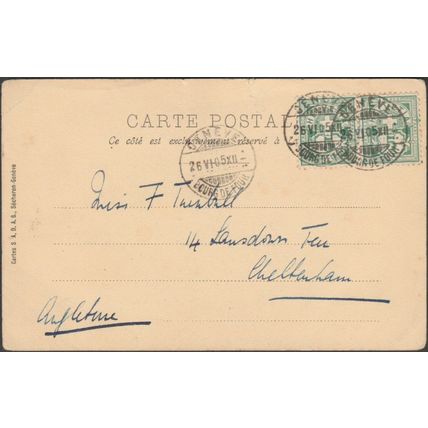 CARTE POSTALE
Ce côté est exclusivement réservé à
GENÈVE
26 VI 05 XII
BOURG-DE-FOUR
GENÈVE
26 VI 05 XII
BOURG-DE-FOUR
GENÈVE
26 VI 05 XII
BOURG-DE-FOUR
Miss F Turnbull
14 Lansdown Ter
Cheltenham
Angleterre
Cartes S.A.D.A.G., Sécheron-Genève